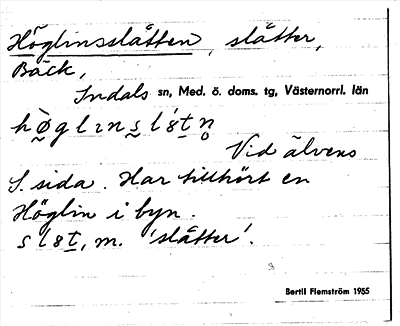 Höglinsslåtten, slåtter,
Bäck,
Indals sn, Med. ö. doms. tg, Västernorrl. län
Vid älvens
S. sida. Har tillhört en
Höglin i byn.
m. 'slåtter'.
Bertil Flemström 1955